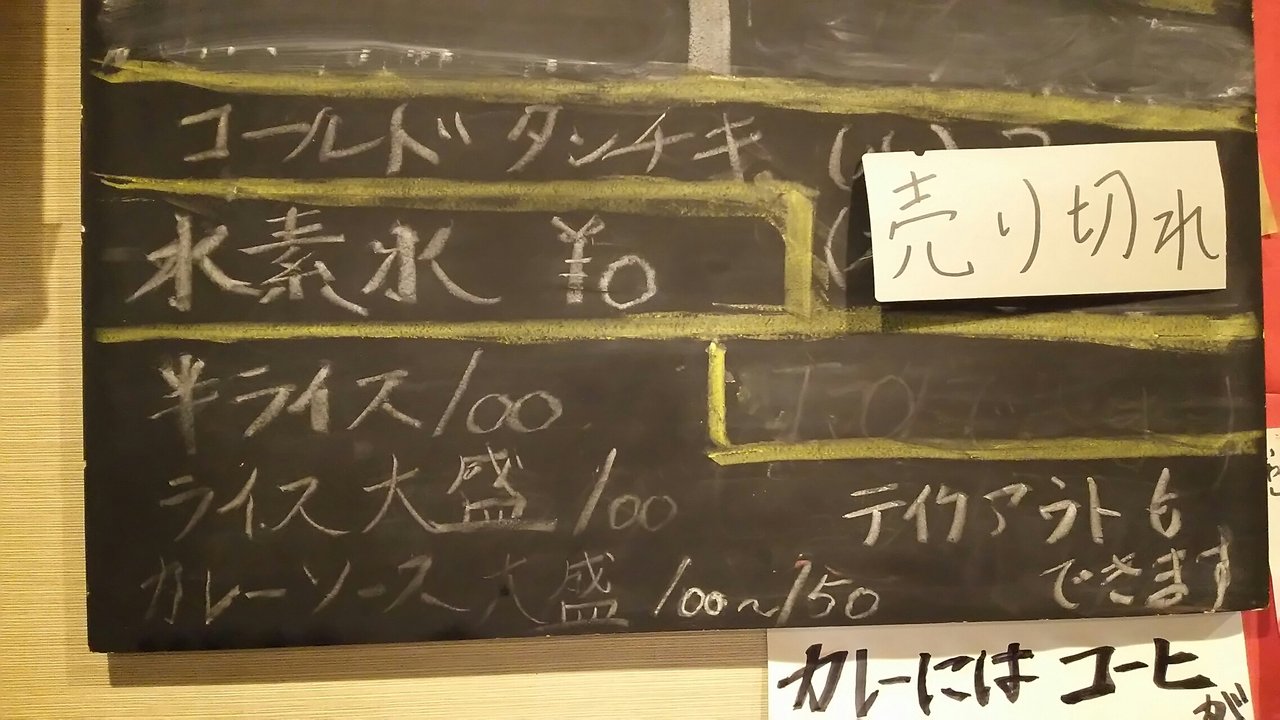 コールドタンチキ
売り切れ
水素水 ¥0
半ライス100
ライス大盛 100
カレーソース大盛 100~150
テイクアウトも
できます
カレーには コーヒ
が